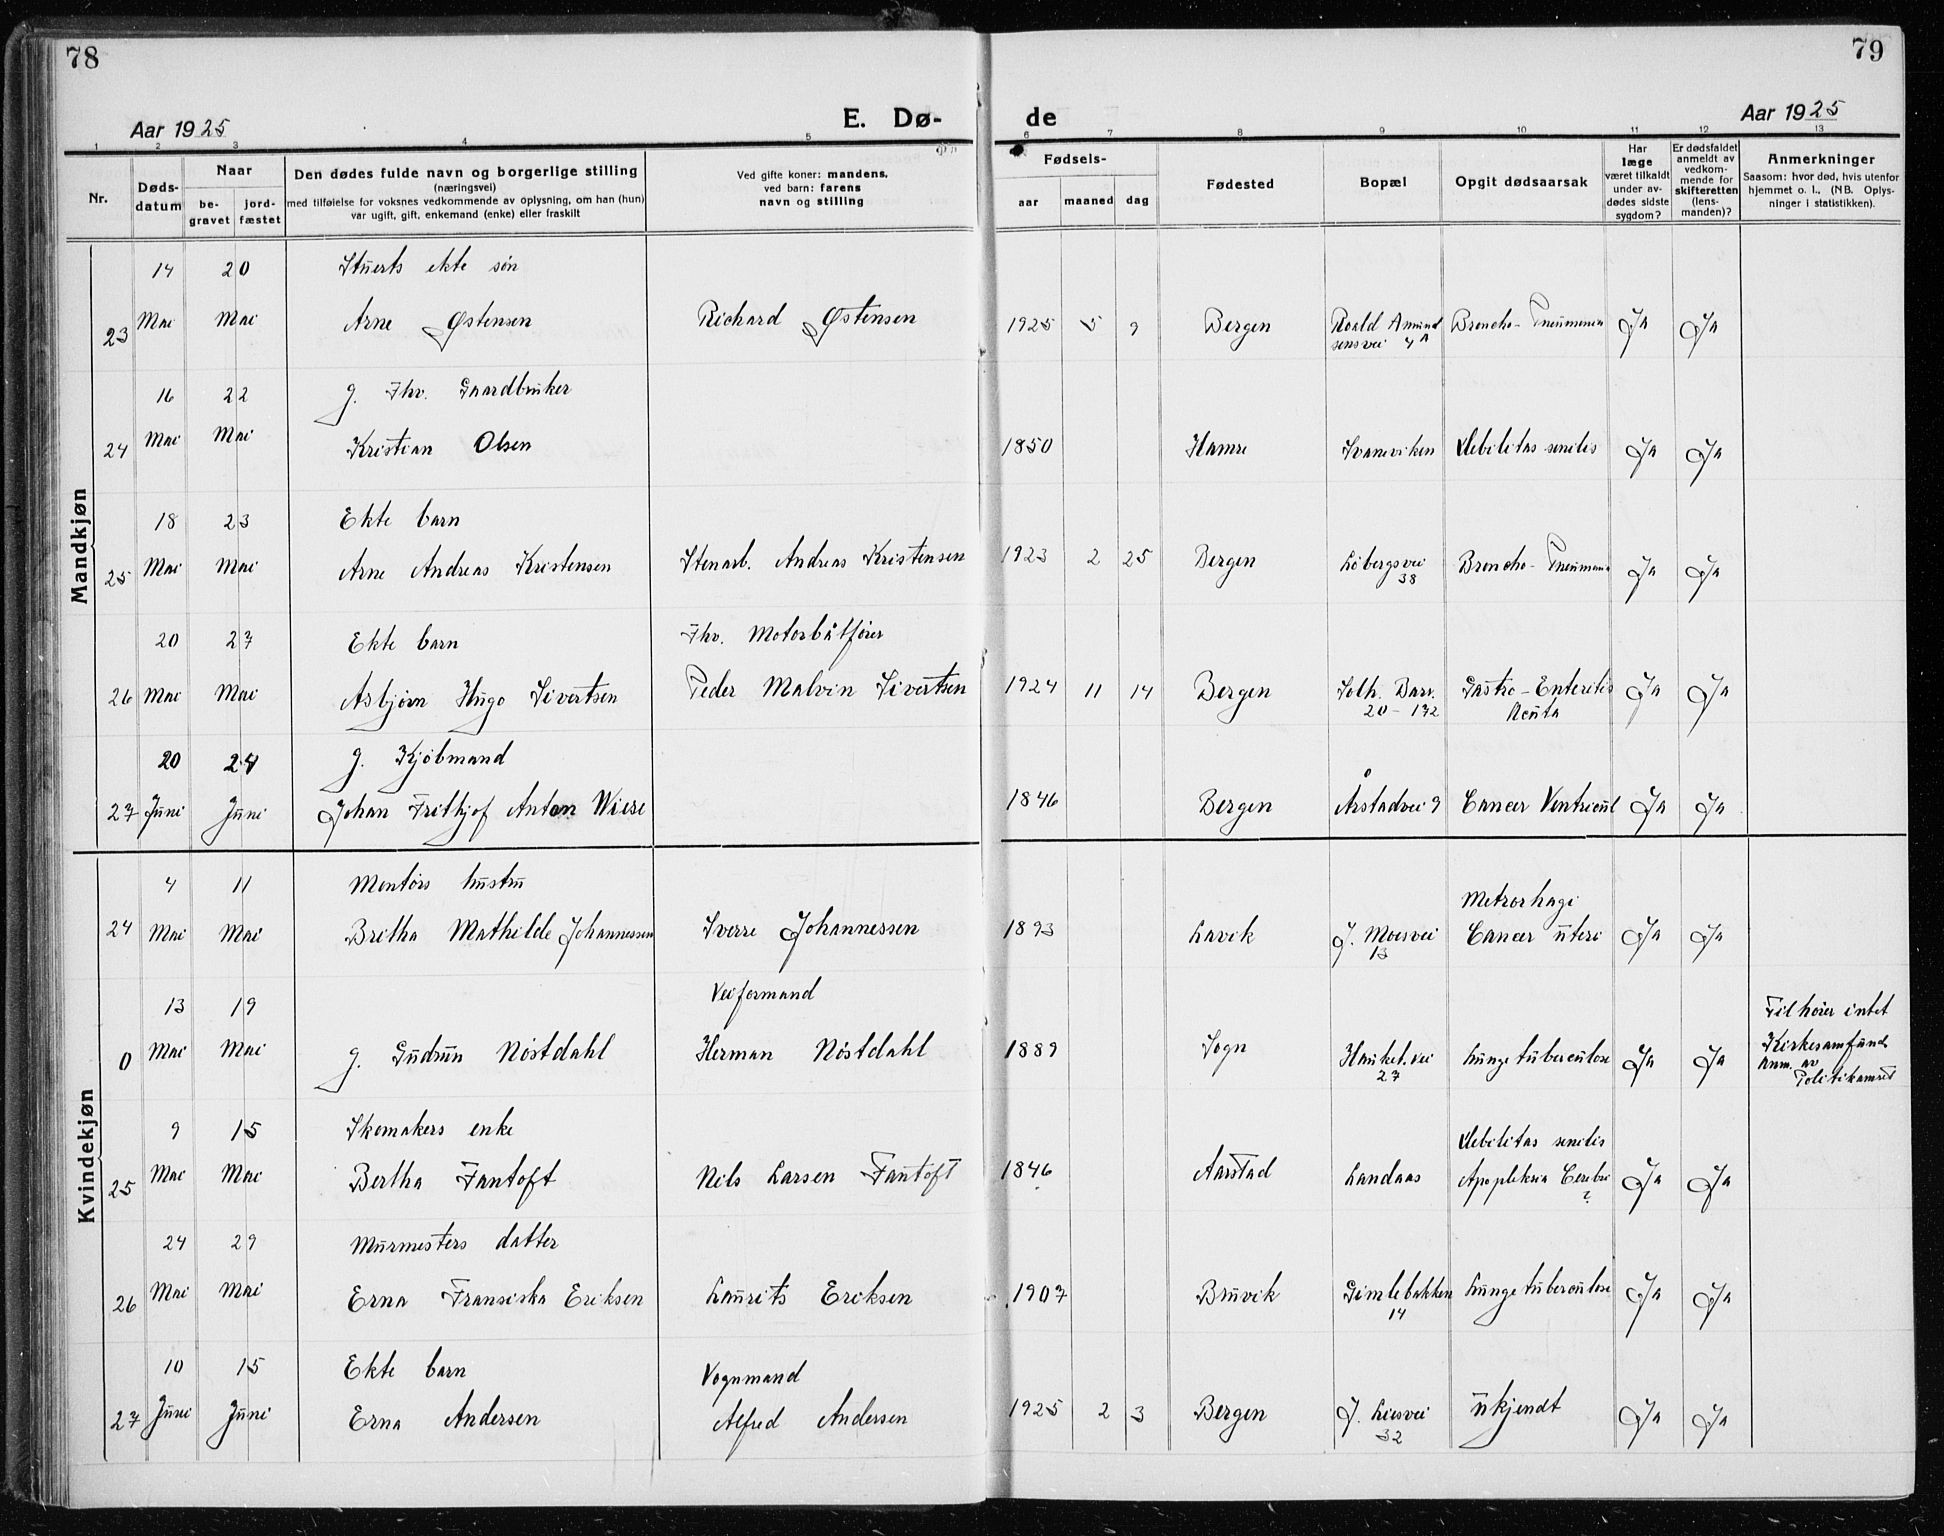 78
79
Aar 1925
E. Dø-
de
Aar 1925
1 2 3 4 5 6 7 8 9 10 11 12 13
Nr.
Døds-
datum
Naar
be-
gravet
jord-
fæstet
Den dødes fulde navn og borgerlige stilling
(næringsvei)
med tilføielse for voksnes vedkommende av oplysning, om han (hun)
var ugift, gift, enkemand (enke) eller fraskilt
Ved gifte koner: mandens,
ved barn: farens
navn og stilling
Fødsels-
aar maaned dag
Fødested
Bopæl
Opgit dødsaarsak
Har
læge
været tilkaldt
under av-
dødes sidste
sygdom?
Er dødsfaldet
anmeldt av
vedkom-
mende for
skifteretten
(lens-
manden)?
Anmerkninger
Saasom: hvor død, hvis utenfor
hjemmet o. l., (NB. Oplys-
ninger i statistikken).
Mandkjøn
14 20 Stuerts ekte søn
23 Mai Mai Arne Østensen Richard Østensen 1925 5 9 Bergen Roald Amund Broncho-Pneumonia Ja Ja
sensvei 4A
16 22 g. Fhv. Gaardbruker
24 Mai Mai Kristian Olsen 1850 Hamre Svaneviken Debilitas senilis Ja Ja
18 23 Ekte barn
25 Mai Mai Arne Andreas Kristensen Stenarb. Andreas Kristensen 1923 2 25 Bergen Løbergsvei Broncho-Pneumonia Ja Ja
38
20 27 Ekte barn Fhv. Motorbåtfører
26 Mai Mai Asbjørn Hugo Sivertsen Peder Malvin Sivertsen 1924 11 14 Bergen Solh. Barr. Gastro-Enteritis Ja Ja
20-132 Acuta
20 24 g. Kjøbmand
27 Juni Juni Johan Frithjof Anton Wiese 1846 Bergen Årstadvei 9 Cancer Ventricul Ja Ja
Kvindekjøn
4 11 Montørs hustru Metrorhagi
24 Mai Mai Britha Mathilde Johannessen Sverre Johannessen 1893 Lavik J. Moesvei Cancer uteri Ja Ja
13
13 19 Veiformand Tilhører intet
0 Mai Mai g. Gudrun Nöstdahl Herman Nöstdahl 1889 Sogn Haukel. vei Lungetuberculose Ja Ja Kirkesamfund
27 Anm. av
Politikamret
9 15 Skomakers enke Debilitas senilis
25 Mai Mai Bertha Fantoft Nils Larsen Fantoft 1846 Aarstad Landaas Apopleksia Cerebri Ja Ja
?
24 29 Murmesters datter
26 Mai Mai Erna Fransiska Eriksen Laurits Eriksen 1907 Bruvik Gimlebakken Lungetuberculose Ja Ja
14
10 15 Ekte barn Vognmand
27 Juni Juni Erna Andersen Alfred Andersen 1925 2 3 Bergen J. Liesvei ukjendt Ja Ja
32